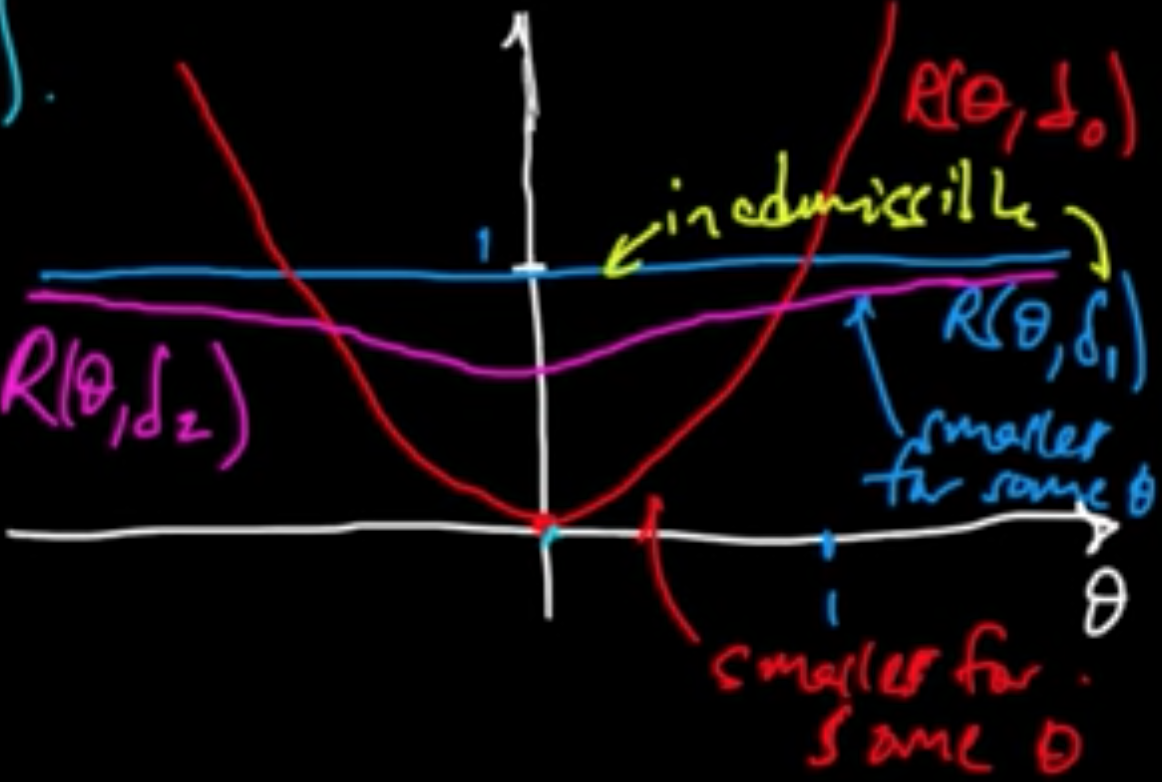 R(θ, δ₀)
inadmissible
1
R(θ, δ₁)
R(θ, δ₂)
smaller
for some θ
1
θ
smaller for
some θ